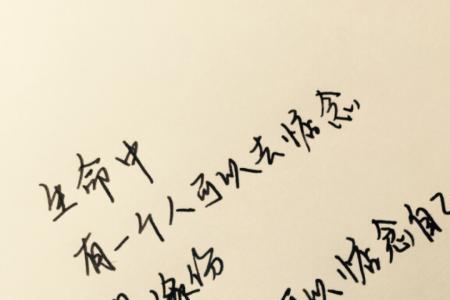 生命中
有一个人可以去惦念
缘份
可以惦念自